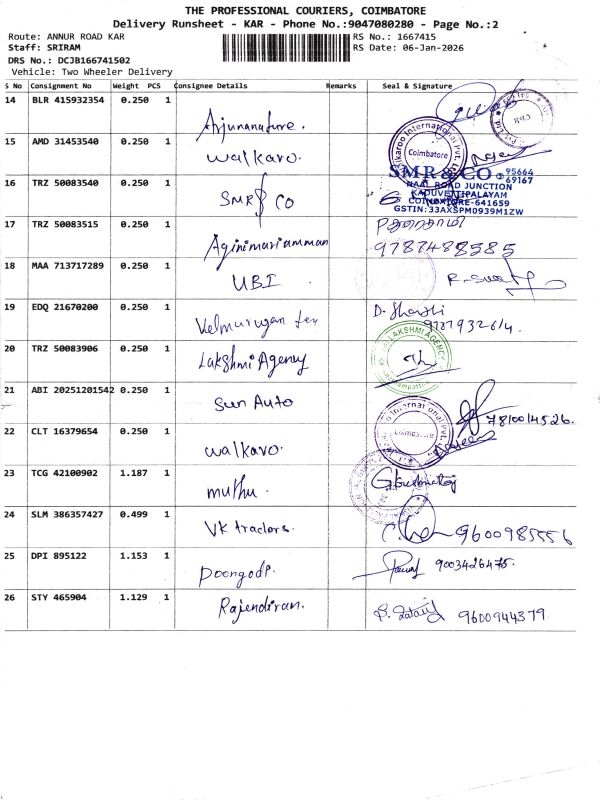 THE PROFESSIONAL COURIERS, COIMBATORE
Delivery Runsheet - KAR - Phone No.:9047080280 - Page No.:2
Route: ANNUR ROAD KAR
RS No.: 1667415
Staff: SRIRAM
RS Date: 06-Jan-2026
DRS No.: DCJB166741502
Vehicle: Two Wheeler Delivery
S No Consignment No Weight PCS Consignee Details Remarks Seal & Signature
14 BLR 415932354 0.250 1 Arjunanature.
15 AMD 31453540 0.250 1 walkaro.
Coimbatore
16 TRZ 50083540 0.250 1 SMR & CO
SMR & CO 95664
69167
NAAL ROAD JUNCTION
KADUVETTIPALAYAM
COIMBATORE-641659
GSTIN:33AXSPM0939M1ZW
17 TRZ 50083515 0.250 1 Aginimariamman
9787488585
18 MAA 713717289 0.250 1 UBI
19 EDQ 21670200 0.250 1 Velmurugan
20 TRZ 50083906 0.250 1 Lakshmi Agency
LAKSHMI AGENCY
21 ABI 20251201542 0.250 1 Sun Auto
7810014526.
22 CLT 16379654 0.250 1 walkaro.
Coimbatore
23 TCG 42100902 1.187 1 muthu.
24 SLM 386357427 0.499 1 VK tractors.
9600985556
25 DPI 895122 1.153 1 Poongodi.
9003426475.
26 STY 465904 1.129 1 Rajendiran.
9600944379.